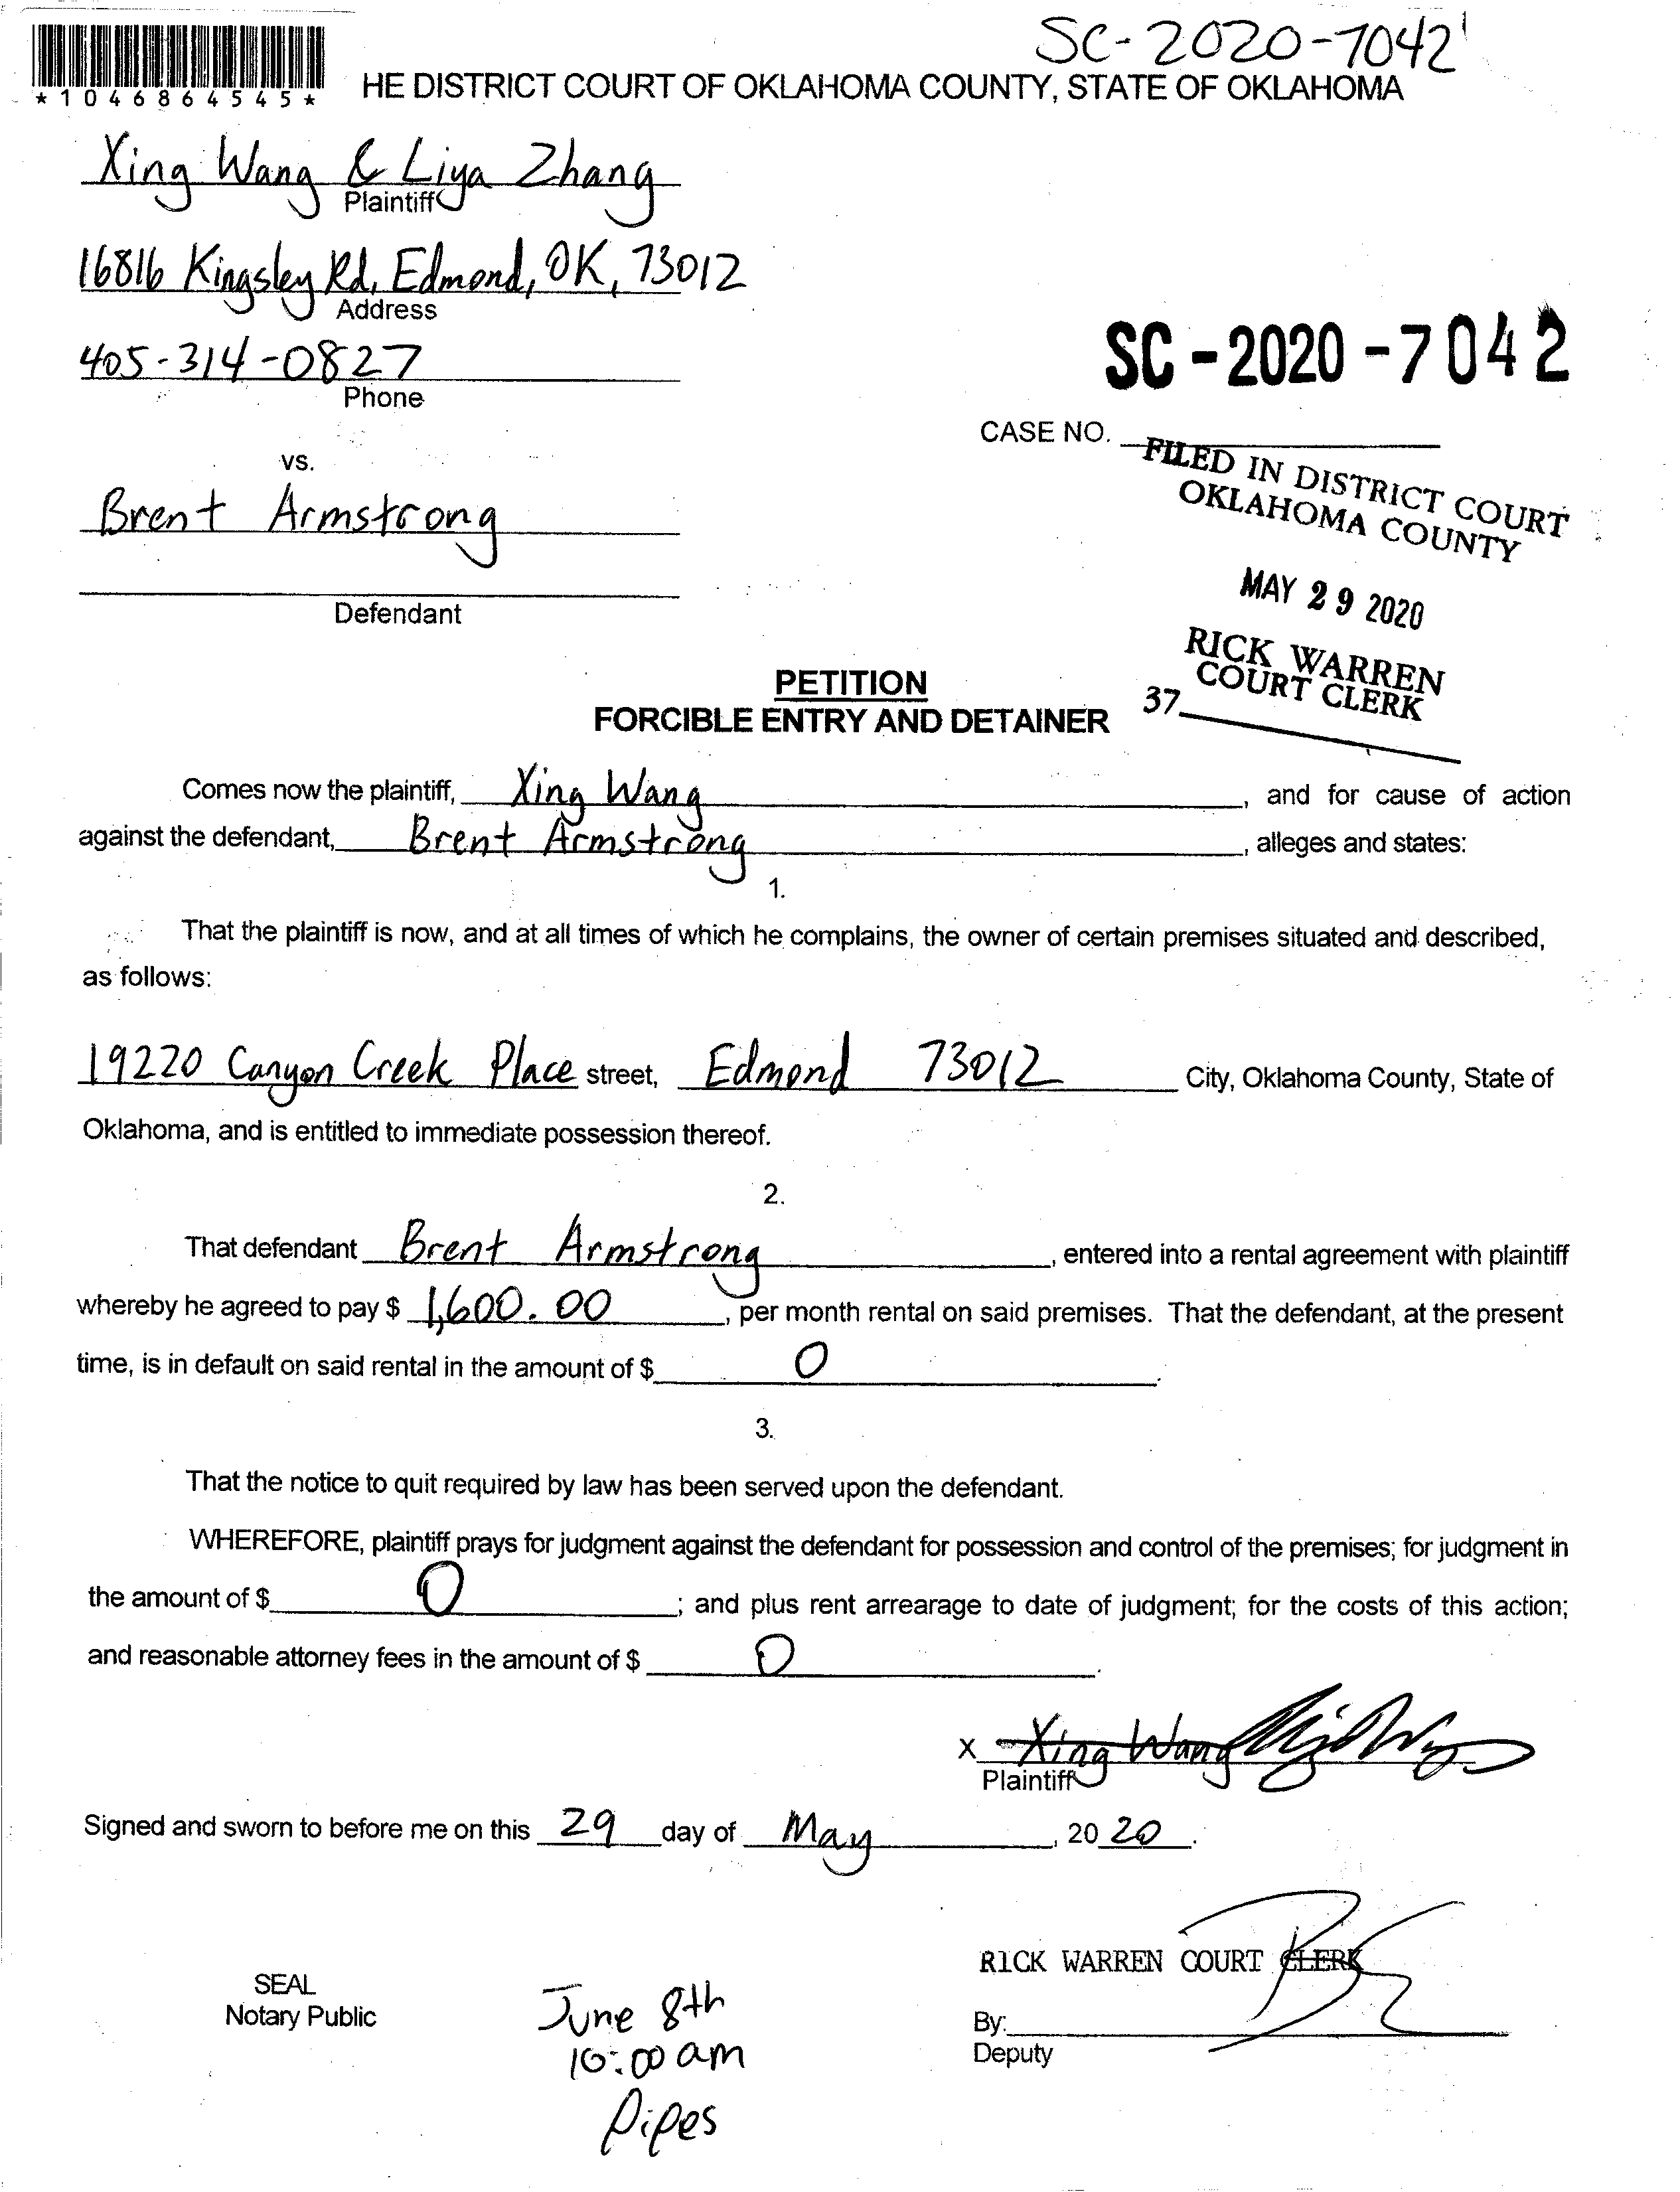 SC-2020-7042
*1046864545*
HE DISTRICT COURT OF OKLAHOMA COUNTY, STATE OF OKLAHOMA
Xing Wang & Liya Zhang
Plaintiff
16816 Kingsley Rd, Edmond, OK, 73012
Address
405-314-0827
Phone
SC-2020-7042
CASE NO.
vs.
FILED IN DISTRICT COURT
OKLAHOMA COUNTY
Brent Armstrong
Defendant
MAY 29 2020
RICK WARREN
COURT CLERK
37
PETITION
FORCIBLE ENTRY AND DETAINER
Comes now the plaintiff, Xing Wang, and for cause of action
against the defendant, Brent Armstrong, alleges and states:
1.
That the plaintiff is now, and at all times of which he complains, the owner of certain premises situated and described,
as follows:
19220 Canyon Creek Place street, Edmond 73012 City, Oklahoma County, State of
Oklahoma, and is entitled to immediate possession thereof.
2.
That defendant Brent Armstrong, entered into a rental agreement with plaintiff
whereby he agreed to pay $ 1,600.00, per month rental on said premises. That the defendant, at the present
time, is in default on said rental in the amount of $ 0.
3.
That the notice to quit required by law has been served upon the defendant.
WHEREFORE, plaintiff prays for judgment against the defendant for possession and control of the premises; for judgment in
the amount of $ 0; and plus rent arrearage to date of judgment; for the costs of this action;
and reasonable attorney fees in the amount of $ 0.
X Xing Wang
Plaintiff
Signed and sworn to before me on this 29 day of May, 2020.
RICK WARREN COURT CLERK
SEAL
Notary Public
By:
Deputy
June 8th
10:00 am
Pipes